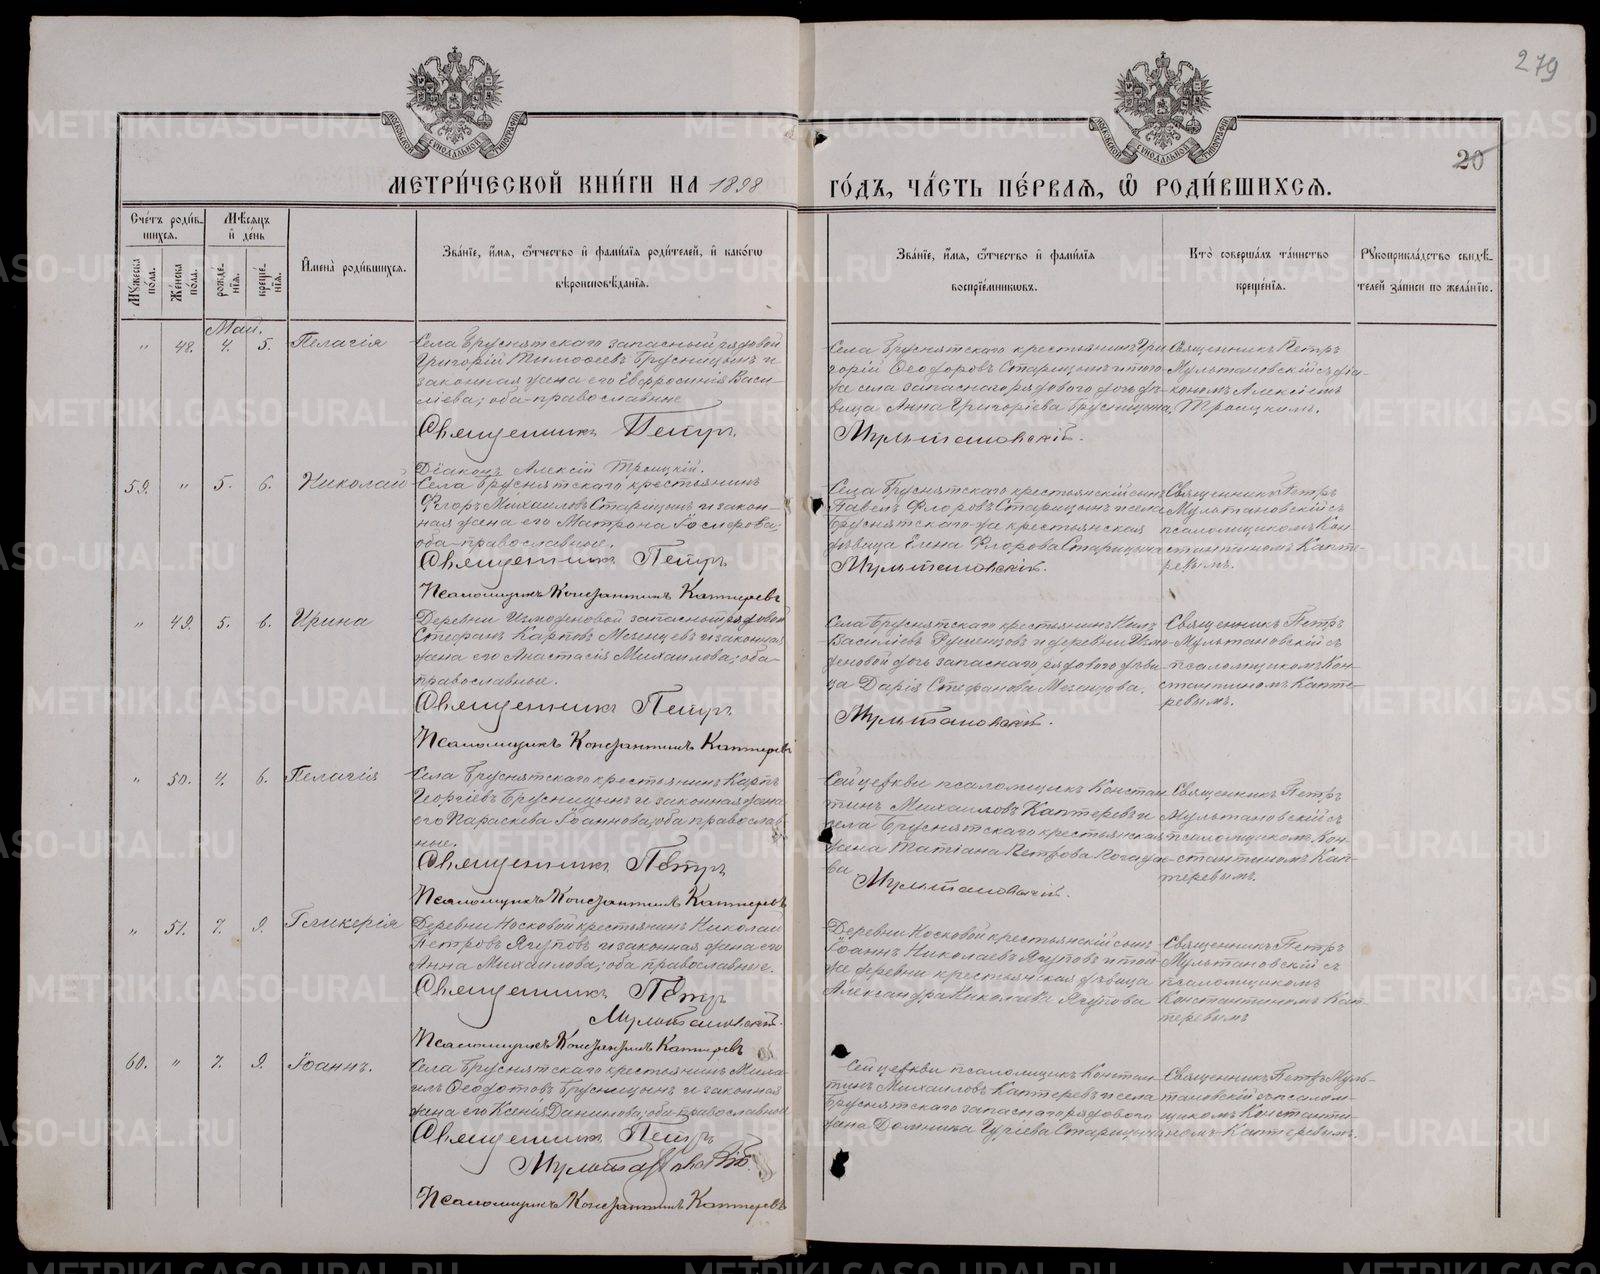 279
20
МЕТРИ́ЧЕСКОЙ КНИ́ГИ НА 1898
ГО́ДЪ, ЧА́СТЬ ПЕ́РВАѦ, Ѡ҆ РОДИ́ВШИХСѦ.
Сче́тъ роди́в-
шихсѧ.
Мꙋ́жеска по́ла.
Же́нска по́ла.
Мѣ́сѧцъ
и҆ де́нь
рожде́-
нїѧ.
креще́-
нїѧ.
И҆мена̀ роди́вшихсѧ.
Зва́нїе, и҆́мѧ, ѻ҆́тчество и҆ фами́лїѧ роди́телей, и҆ како́гѡ
вѣроисповѣ́данїѧ.
Зва́нїе, и҆́мѧ, ѻ҆́тчество и҆ фами́лїѧ
воспрїе́мникѡвъ.
Кто̀ соверша́лъ та́инство
креще́нїѧ.
Рꙋкоприкла́дство свидѣ́-
телей за́писи по жела́нїю.
Май.
" 48. 4. 5. Пелагія
Села Бруснятскаго запасный рядовой
Григорій Тимофеевъ Брусницынъ и
законная жена его Евфросинія Васи-
лiева; оба православные
Священникъ Петръ
Мультановскій.
Діаконъ Алексій Троицкій.
Села Бруснятскаго крестьянинъ Гри
горій Ѳеодоровъ Старицынъ и того
же села запаснаго рядового дочь дѣ-
вица Анна Григоріева Брусницына.
Священникъ Петръ
Мультановскій съ діа-
кономъ Алексіемъ
Троицкимъ.
59. " 5. 6. Николай
Села Бруснятскаго крестьянинъ
Флоръ Михаиловъ Старицынъ и закон-
ная жена его Матрона
оба православные.
Священникъ Петръ
Мультановскій.
Псаломщикъ Константинъ Каптеревъ
Села Бруснятскаго крестьянскій сынъ
Павелъ Флоровъ Старицынъ и села
Бруснятскаго же крестьянская
дѣвица Елена Флорова Старицына
Священникъ Петръ
Мультановскій съ
псаломщикомъ Кон-
стантиномъ Капте-
ревымъ.
" 49. 5. 6. Ирина
Деревни Измоденовой запасный рядовой
Стефанъ Карповъ Мезенцевъ и законная
жена его Анастасія Михаилова; оба
православные.
Священникъ Петръ
Мультановскій.
Псаломщикъ Константинъ Каптеревъ
Села Бруснятскаго крестьянинъ
Василіевъ и деревни Измо-
деновой дочь запаснаго рядового дѣви-
ца Дарія Стефанова Мезенцова.
Священникъ Петръ
Мультановскій съ
псаломщикомъ Кон-
стантиномъ Капте-
ревымъ.
" 50. 4. 6. Пелагія
Села Бруснятскаго крестьянинъ Карпъ
Георгіевъ Брусницынъ и законная жена
его Параскева Іоаннова; оба православ-
ные.
Священникъ Петръ
Мультановскій.
Псаломщикъ Константинъ Каптеревъ
Сей церкви псаломщикъ Констан
тинъ Михаиловъ Каптеревъ и
села Бруснятскаго крестьянская
жена Татіана Петрова
Священникъ Петръ
Мультановскій съ
псаломщикомъ Кон-
стантиномъ Кап-
теревымъ.
" 51. 7. 9. Гликерія
Деревни Носковой крестьянинъ Николай
Петровъ Ягуповъ и законная жена его
Анна Михаилова; оба православные.
Священникъ Петръ
Мультановскій.
Псаломщикъ Константинъ Каптеревъ
Деревни Носковой крестьянскій сынъ
Іоаннъ Николаевъ Ягуповъ и той
же деревни крестьянская дѣвица
Александра Николаева Ягупова
Священникъ Петръ
Мультановскій съ
псаломщикомъ
Константиномъ Кап-
теревымъ
60. " 7. 9. Іоаннъ.
Села Бруснятскаго крестьянинъ Миха-
илъ Ѳеодотовъ Брусницынъ и законная
жена его Ксенія Данилова; оба православные
Священникъ Петръ
Мультановскій.
Псаломщикъ Константинъ Каптеревъ
Сей церкви псаломщикъ Констан-
тинъ Михаиловъ Каптеревъ и села
Бруснятскаго запаснаго рядового
жена Домника Старицына
Священникъ Петръ Муль-
тановскій съ псалом-
щикомъ Константи-
номъ Каптеревымъ.
METRIKI.GASO-URAL.RU